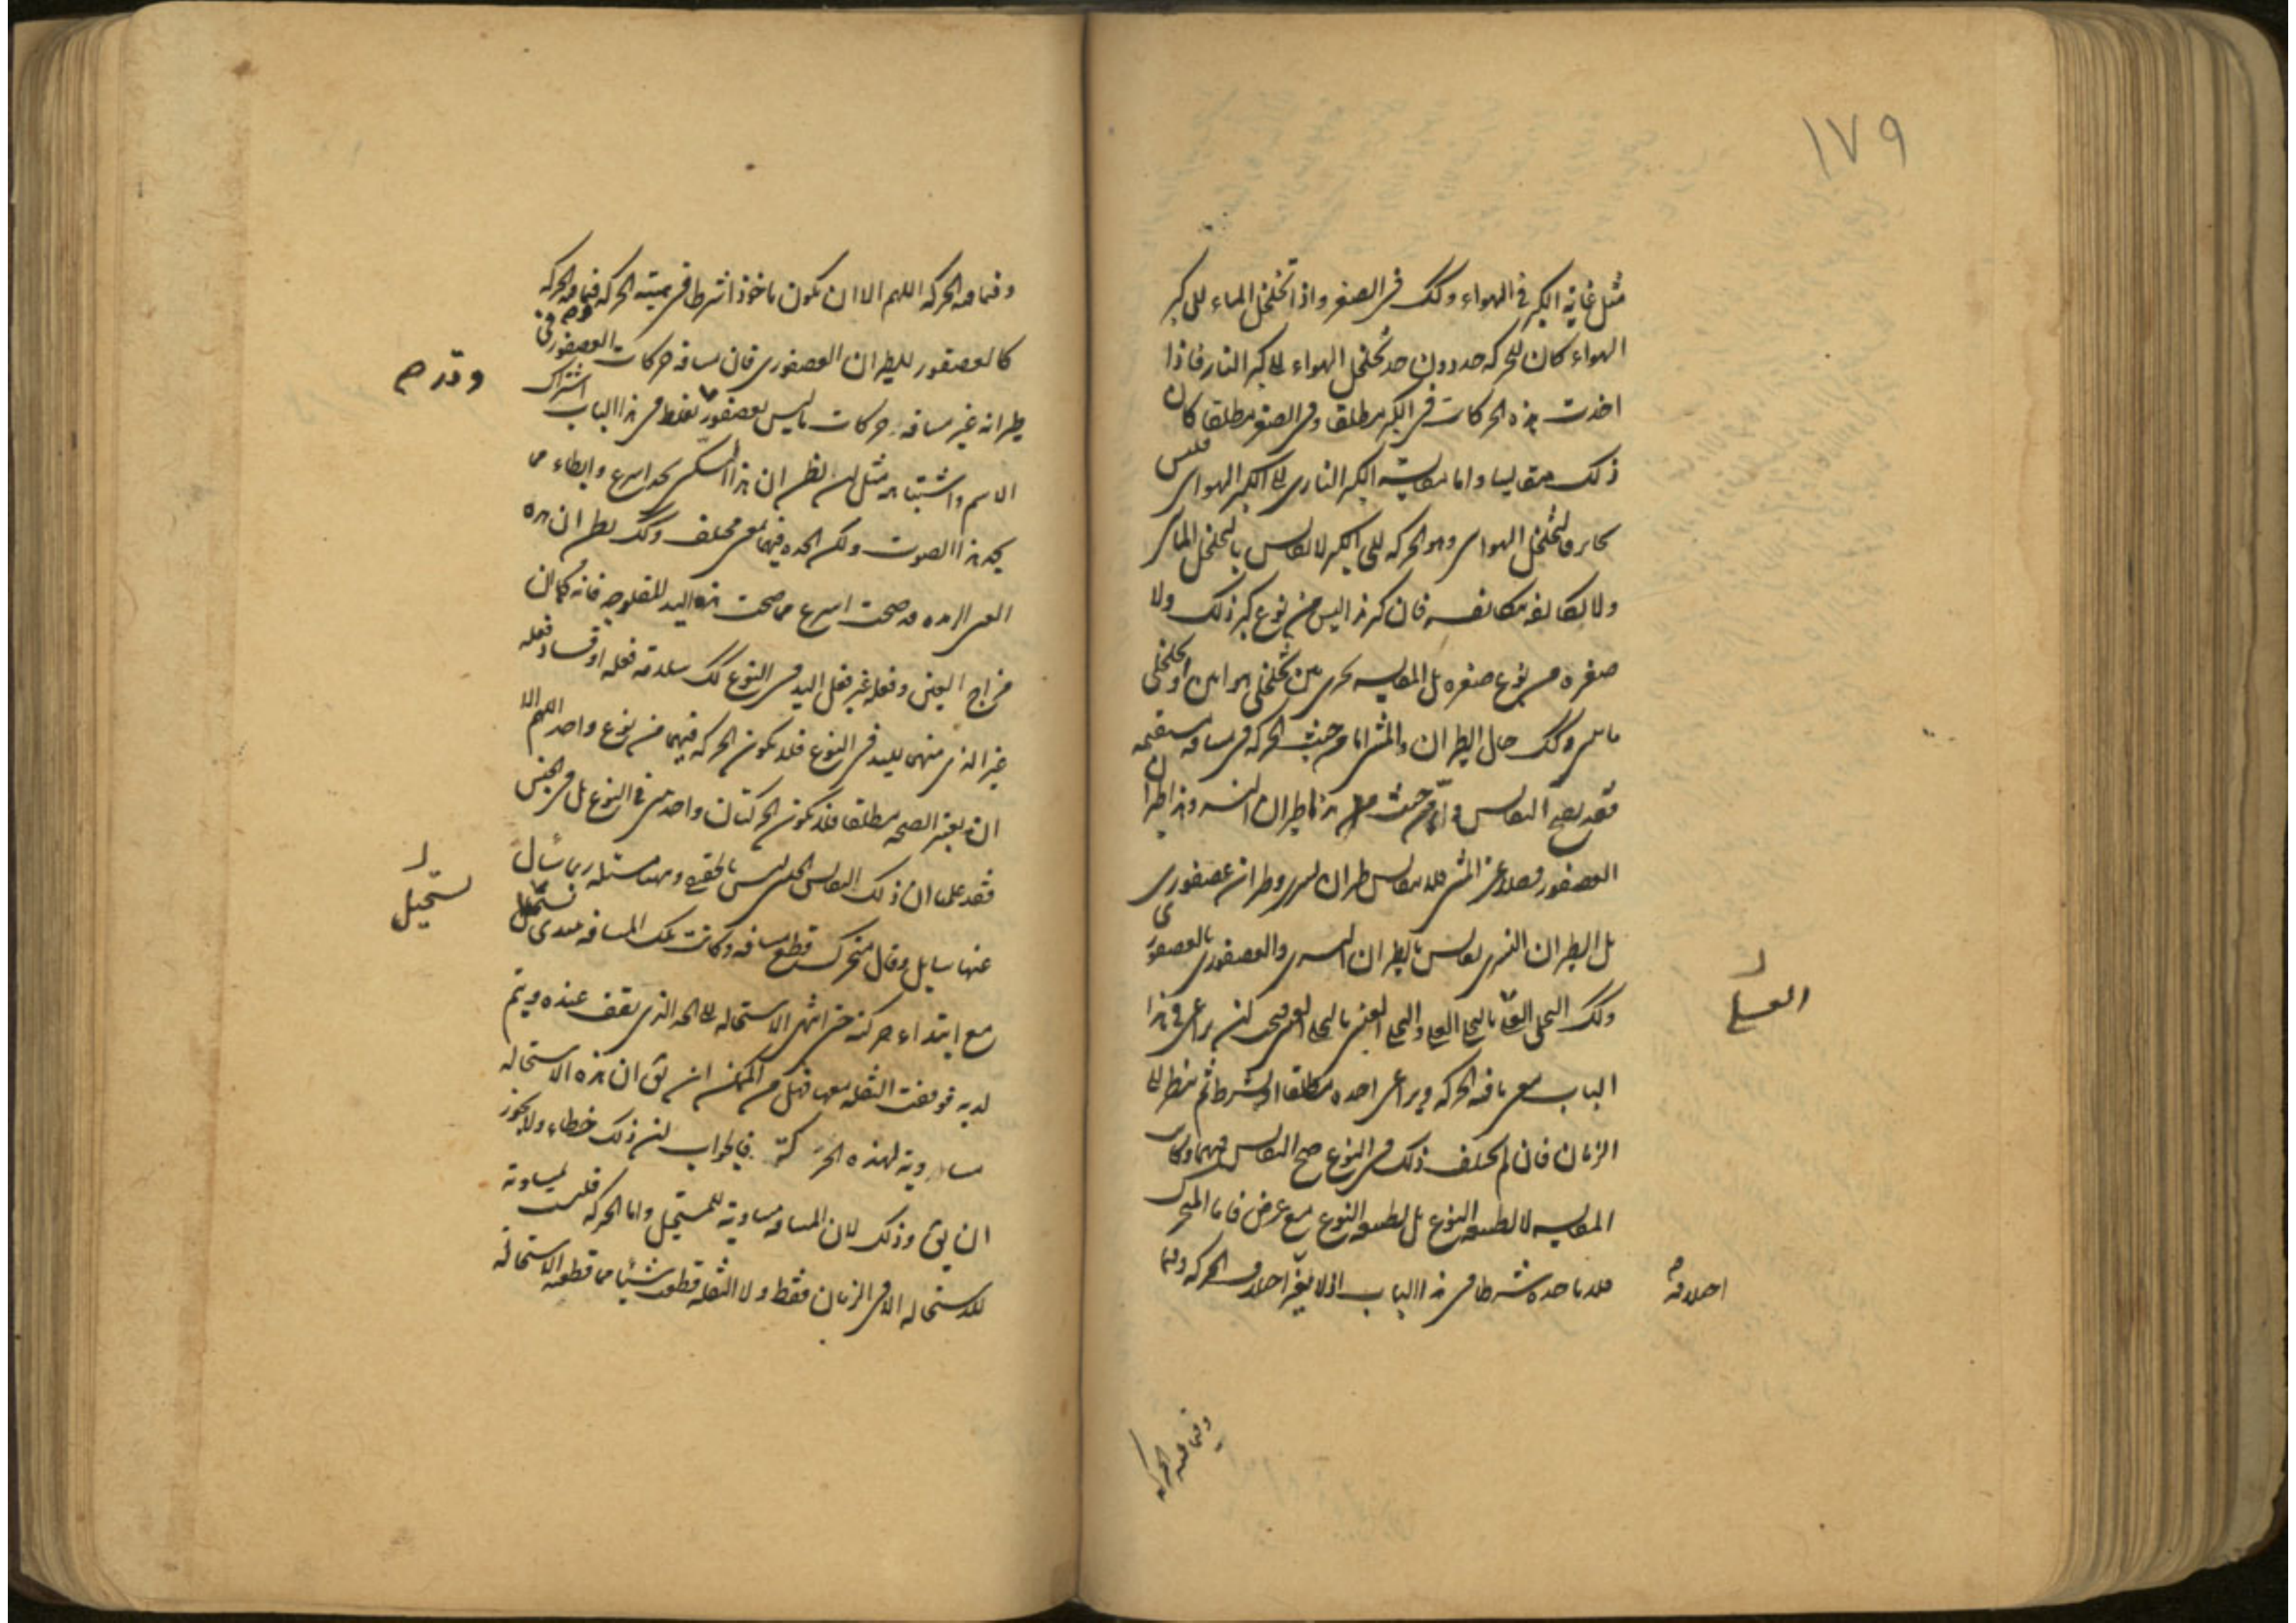 ١٧٩
مثل غاية الكبر فى الهواء وكك فى الصغر واذا تخلخل الماء الى كبر
الهواء كان للحركة حد دون حد تخلخل الهواء الى كبر النار فاذا
اخذت هذه الحركات فى الكبر مطلقا وفى الصغر مطلقا كان
ذلك متقايسا واما مقايسة الكبر النارى الى الكبر الهواى فليس
التخلخل الهواى وهو الحركة الى الكبر لا يقاس بالتخلخل المائى
ولا تكاثفه بتكاثفه فان كبر هذا ليس من نوع كبر ذلك ولا
صغره من نوع صغره بل المقايسة تجرى بين تخلخلى هوائين او تخلخلى
مائين وكك حال الطيران والمشى اما من حيث الحركة فى مسافة مستقيمة
فقد يصح التقايس واما من حيث هذا طيران النسر وهذا طيران
العصفور فضلا عن المشى فلا يتقايس طيران نسرى وطيران عصفورى
بل الطيران النسرى يقاس بالطيران النسرى والعصفورى بالعصفورى
وكك
العسلى
الباب معنى ما فيه الحركة ويراعى اخذه مطلقا او بشرط ثم ينظر الى
الزمان فان لم يختلف ذلك فى النوع صح التقايس فيهما وكان
المقايسة لا لطبيعة النوع بل لطبيعة النوع مع عرض فاما المتحرك
فلا ناخذه شرطا فى هذا الباب اذ لا يغير اختلاف الحركة وفيما
اختلافه
وفيما فيه الحركة
وفيما فيه الحركة اللهم الا ان يكون ماخوذا شرطا فى هيئة الحركة فيما فيه الحركة
كالعصفور للطيران العصفورى فان مسافة حركات العصفور فى
طيرانه غير مسافة حركات ما ليس بعصفور يغلط فى هذا الباب اشتراك
الاسم واشتباهه مثل من يظن ان هذا السكين يحد اسرع وابطاء مما
يحد هذا الصوت ولكن الحدة فيهما بمعنى مختلف وكك يظن ان هذه
العين الرمدة قد صحت اسرع مما صحت هذه اليد المفلوجة فانه كما ان
مزاج العين وفعله غير فعل اليد فى النوع كك سلامة فعله او فساد فعله
غير الذى منهما لليد فى النوع فلا تكون الحركة فيهما من نوع واحد اللهم الا
ان يعتبر الصحة مطلقا فلا تكون الحركتان واحدتين فى النوع بل فى الجنس
فقد علمنا ان ذلك التقايس الجنسى ليس بالحقيقى وههنا مسئلة ربما سأل
عنها سايل وقال متحرك قطع مسافة وكانت تلك المسافة تبتدى تستحيل
مع ابتداء حركته حتى انتهى الاستحالة الى الحد الذى يقف عنده ويتم
لديه فوقفت النقلة معها فهل من الممكن ان يق ان هذه الاستحالة
مساوية لهذه الحركة فالجواب ان ذلك خطاء ولا يجوز
ان يق وذلك لان المسافة مساوية للمستحيل واما الحركة فليست مساوية
للاستحالة الا فى الزمان فقط ولا النقلة قطعت شيئا مما قطعته الاستحالة
وقد رم
تستحيل